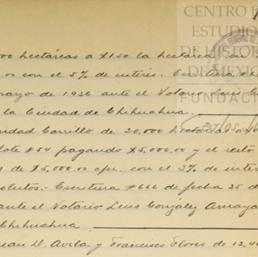 CENTRO E
ESTUDIO
DE HISTOR
DE MEXI
FUNDAC
000 hectáreas a $1.50 la hectárea en
.00 con el 5% de interés. Escritura
mayo de 1936 ante el Notario Luis
la Ciudad de Chihuahua.
idad Carrillo de 20,000 hectáreas
lote #54 pagando $5,000.00 y el resto
s de $5,000.00 c/u. con el 3% de inter
solutos. Escritura #666 de fecha 25 d
ante el Notario Luis González Amaya
Chihuahua
uan D. Avila y Francisco Flores de 12,